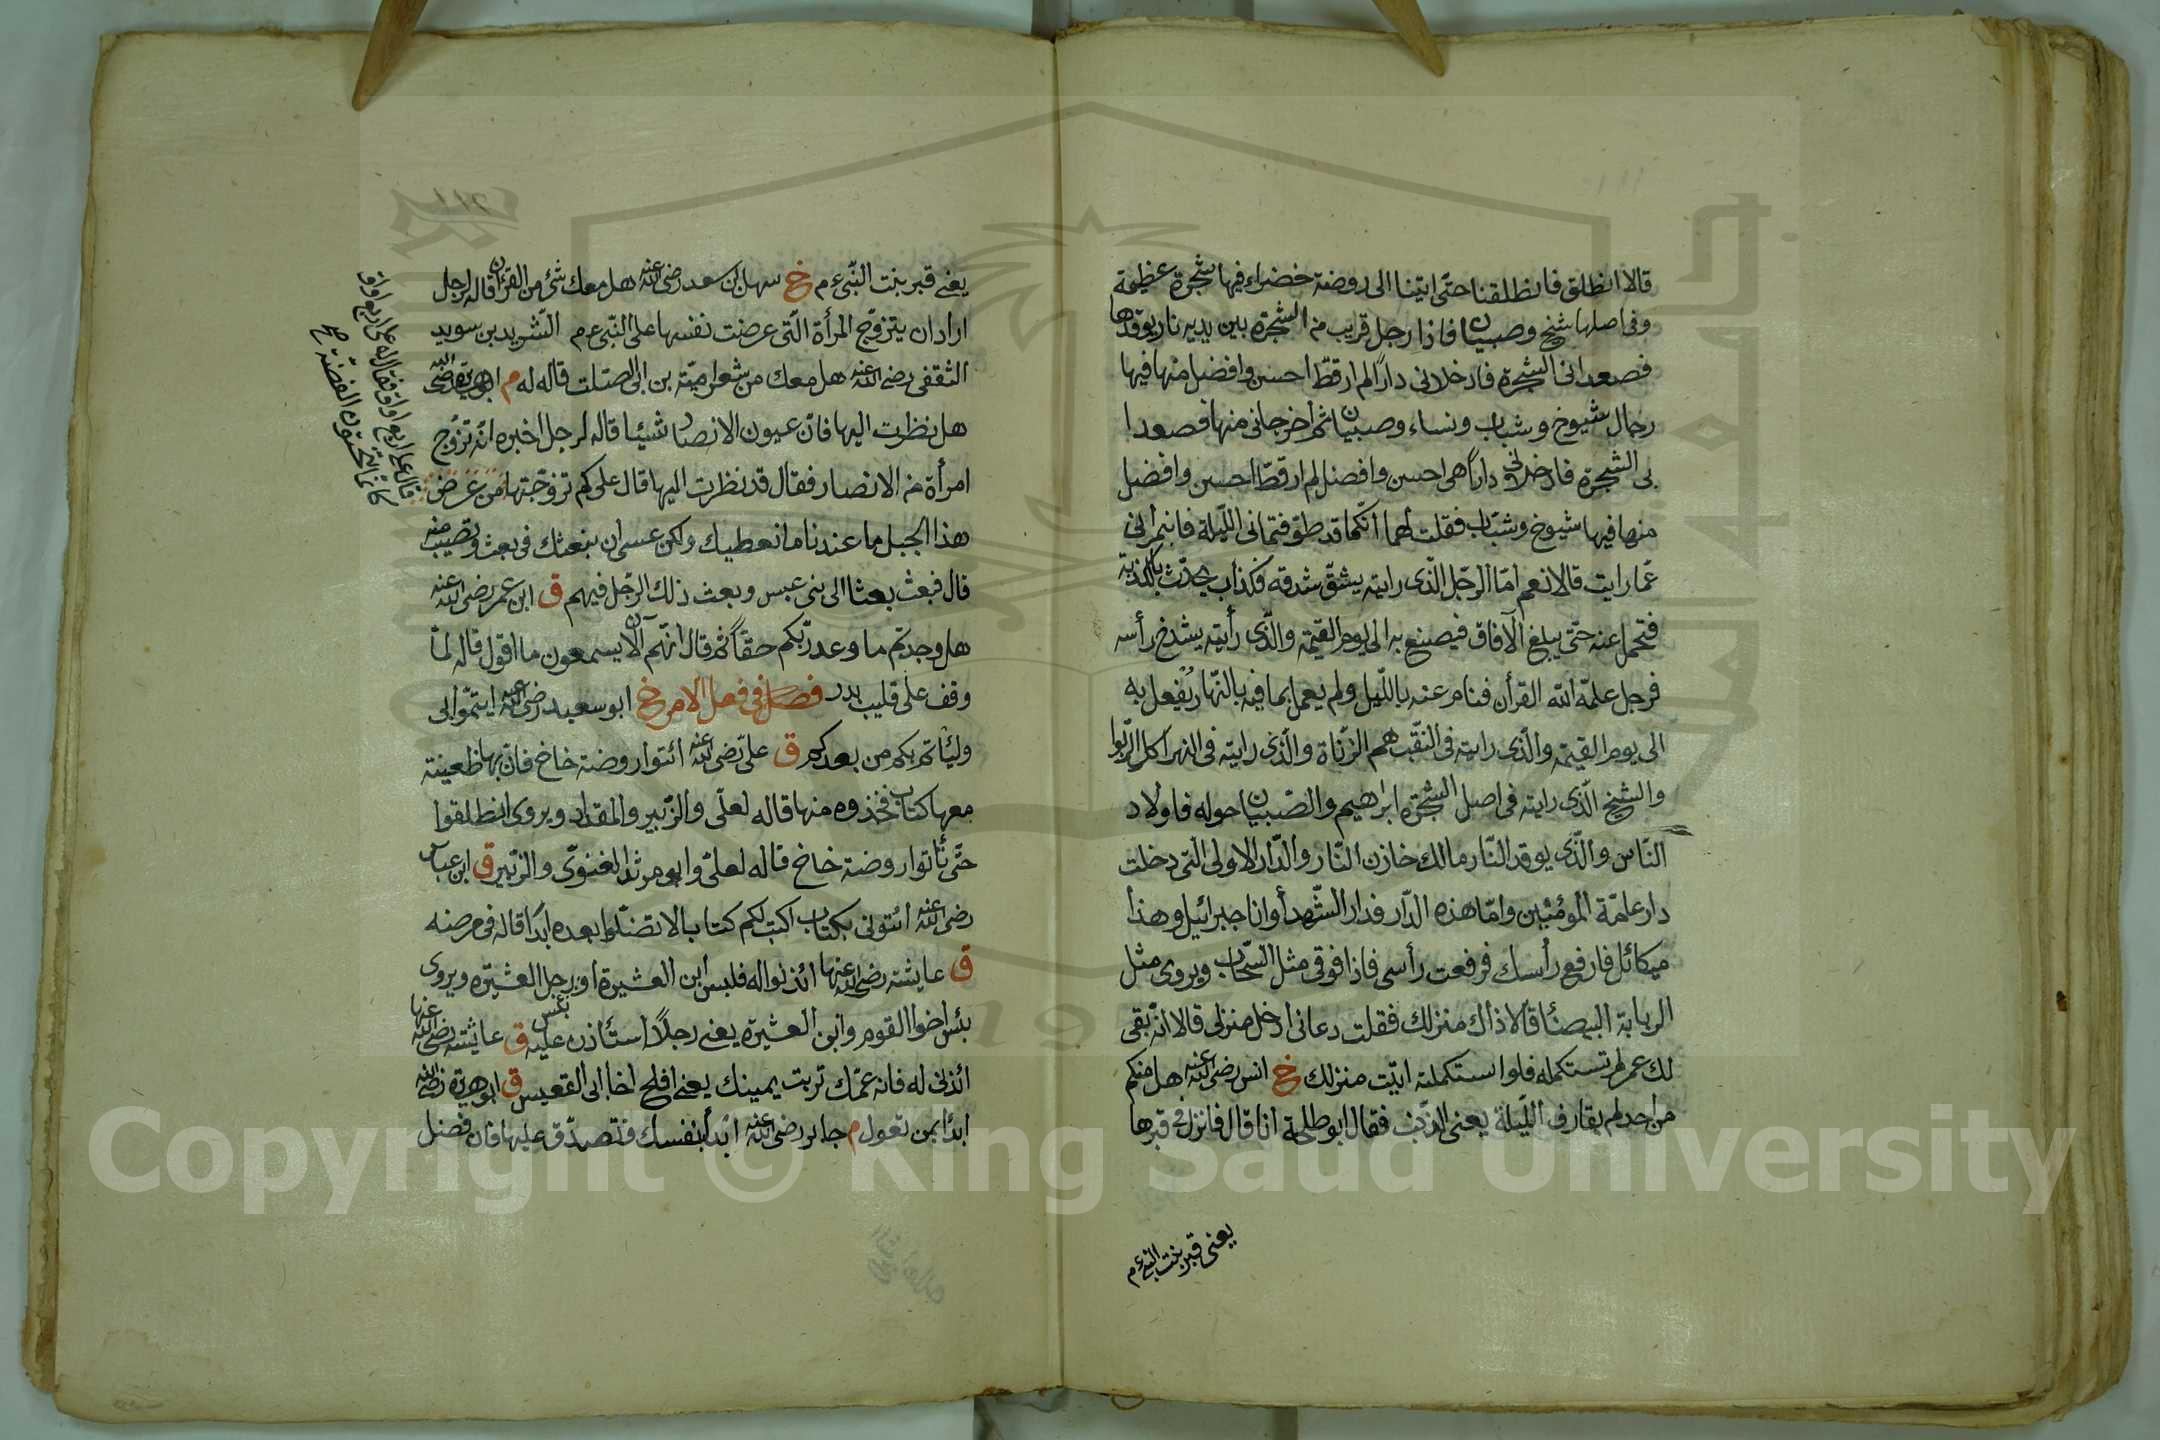 قالا انطلق فانطلقنا حتى اتينا الى روضة خضراء فيها شجرة عظيمة
وفى اصلها شيخ وصبيان فاذا رجل قريب من الشجرة بين يديه نار يوقدها
فصعدا بى الشجرة فادخلانى داراً لم ار قطّ احسن وافضل منها فيها
رجال شيوخ وشباب ونساء وصبيان ثم اخرجانى منها فصعدا
بى الشجرة فادخلانى داراً هى احسن وافضل لم ار قطّ احسن وافضل
منها فيها شيوخ وشبّاب فقلت لهما انّكما قد طوّفتمانى الليلة فاخبرانى
عمّا رايت قالا نعم امّا الرّجل الّذى رايته يشقّ شدقه فكذاب يحدّث بالكذبة
فتحمل عنه حتّى يبلغ الآفاق فيصنع به الى يوم القيٰمة والّذى رأيته يشدخ رأسه
فرجل علمّه اللّه القرأن فنام عنه باللّيل ولم يعمل بما فيه بالنّهار يُفعل به
الى يوم القيٰمة والّذى رايته فى النقب هم الزّناة والّذى رايته فى النهر اكل الرّبوا
والشيخ الّذى رايته فى اصل الشجرة ابراهيم والصّبيان حوله فاولاد
النّاس والّذى يوقد النّار مالك خازن النّار والدّار الاولى الّتى دخلت
دار عامّة المؤمنين وامّا هذه الدّار فدار الشّهدأ وانا جبرائيل وهذا
ميكائل فارفع رأسك فرفعت رأسى فاذا فوقى مثل السّحاب ويروى مثل
الربابة البيضأ قالا ذاك منزلك فقلت دعانى ادخل منزلى قالا انّه بقى
لك عمر لم تستكمله فلو استكملته اتيت منزلك خ انس رضى اللّه عنه هل منكم
من احد لم يقارف اللّيلة يعنى الذّنب فقال ابو طلحة انا قال فانزل فى قبرها
يعنى قبر بنت النبى ءم
يعنى قبر بنت النّبى ءم خ سهل بن سعد رضى اللّه عنه هل معك شئ من القرأن قاله لرجل
اراد ان يتزوّج المرأة الّتى عرضت نفسها على النّبى ءم الشّريد بن سويد
الثقفى رضى اللّه عنه هل معك من شعر اميّة بن ابى الصّلت قاله له م ابو هريرة رضى اللّه
هل نظرت اليها فانّ عيون الانصار شيئا قاله لرجل اخبره انّه تزوّج
امرأة من الانصار فقال قد نظرت اليها قال على كم تزوّجتها من عَرَض
هذا الجبل ما عندنا ما نعطيك ولكن عسى ان نبعثك فى بعث وتصيب منه
قال فبعث بعثا الى بنى عبس وبعث ذلك الرّجل فيهم ق ابن عمر رضى اللّه عنه
هل وجدتم ما وعد ربّكم حقّاً ثم قال انهّم الآن يسمعون ما اقول قاله لمّا
وقف على قليب بدر فصل فى فعل الامر خ ابو سعيد رضى اللّه عنه ايتمّوا بى
وليأتم بكم من بعدكم ق على رضى اللّه عنه ائتوا روضة خاخ فانّ بها ظعينة
معها كتاب فخذوه منها قاله لعلّى والزّبير والمقداد ويروى انطلقوا
حتّى تأتوا روضة خاخ قاله لعلىّ وابو مرثد الغنوىّ والزّبير ق ابن عباس
رضى اللّه عنه ائتونى بكتاب اكتب لكم كتابا لا تضلّوا بعده ابداً قاله فى مرضه
ق عايشة رضى اللّه عنها ائذنوا له فلبس ابن العشيرة او رجل العشيرة ويروى
بئس اخوا القوم وابن العشيرة يعنى رجلاً استأذن عليه ق عايشة رضى اللّه عنها
ائذنى له فانه عمّك تربت يمينك يعنى افلح اخا ابى القعيس ق ابو هريرة رضى اللّه
ابدأ بمن تعول م جابر رضى اللّه عنه ابدأ بنفسك فتصدّق عليها فان فضل
فقال على اربع اواق فقال له على اربع اواق
كانما تنحتون الفضة
Copyright © King Saud University